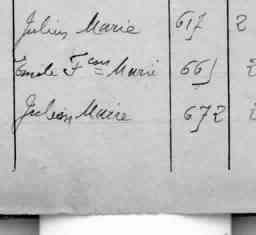 Julien Marie 617 2
Emile Fcois Marie 661 2
Julien Marie 672 2